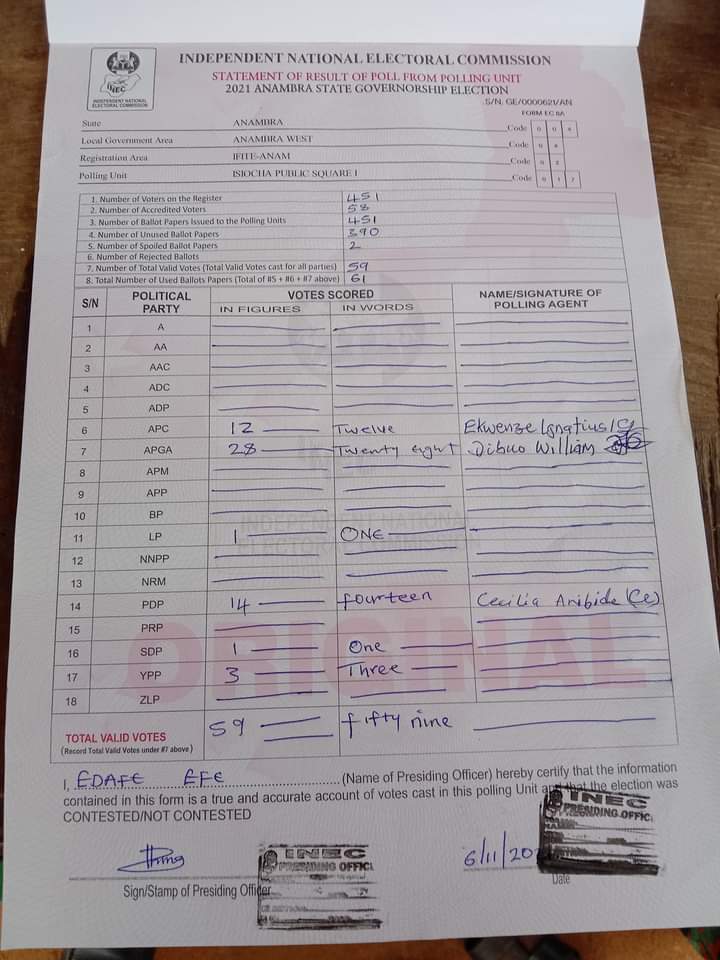 INDEPENDENT NATIONAL ELECTORAL COMMISSION
STATEMENT OF RESULT OF POLL FROM POLLING UNIT
2021 ANAMBRA STATE GOVERNORSHIP ELECTION
INEC
INDEPENDENT NATIONAL
ELECTORAL COMMISSION
S/N. GE/0000621/AN
FORM EC 8A
State ANAMBRA Code 0 0 4
Local Government Area ANAMBRA WEST Code 0 4
Registration Area IFITE-ANAM Code 0 2
Polling Unit ISIOCHA PUBLIC SQUARE I Code 0 1 2
1. Number of Voters on the Register 451
2. Number of Accredited Voters 58
3. Number of Ballot Papers Issued to the Polling Units 451
4. Number of Unused Ballot Papers 390
5. Number of Spoiled Ballot Papers 2
6. Number of Rejected Ballots
7. Number of Total Valid Votes (Total Valid Votes cast for all parties) 59
8. Total Number of Used Ballots Papers (Total of #5 + #6 + #7 above) 61
S/N POLITICAL PARTY VOTES SCORED NAME/SIGNATURE OF POLLING AGENT
IN FIGURES IN WORDS
1 A
2 AA
3 AAC
4 ADC
5 ADP
6 APC 12 Twelve Ekwenze Ignatius
7 APGA 28 Twenty eight Dibuo William
8 APM
9 APP
10 BP
11 LP 1 ONE
12 NNPP
13 NRM
14 PDP 14 fourteen Cecilia Anibide (Ce)
15 PRP
16 SDP 1 One
17 YPP 3 Three
18 ZLP
ORIGINAL
INDEPENDENT NATIONAL
ELECTORAL COMMISSION
TOTAL VALID VOTES 59 fifty nine
(Record Total Valid Votes under #7 above)
I, EDAFE EFE (Name of Presiding Officer) hereby certify that the information
contained in this form is a true and accurate account of votes cast in this polling Unit and that the election was
CONTESTED/NOT CONTESTED
INEC
PRESIDING OFFIC
6/11/202
INEC
PRESIDING OFFIC
Sign/Stamp of Presiding Officer
Date